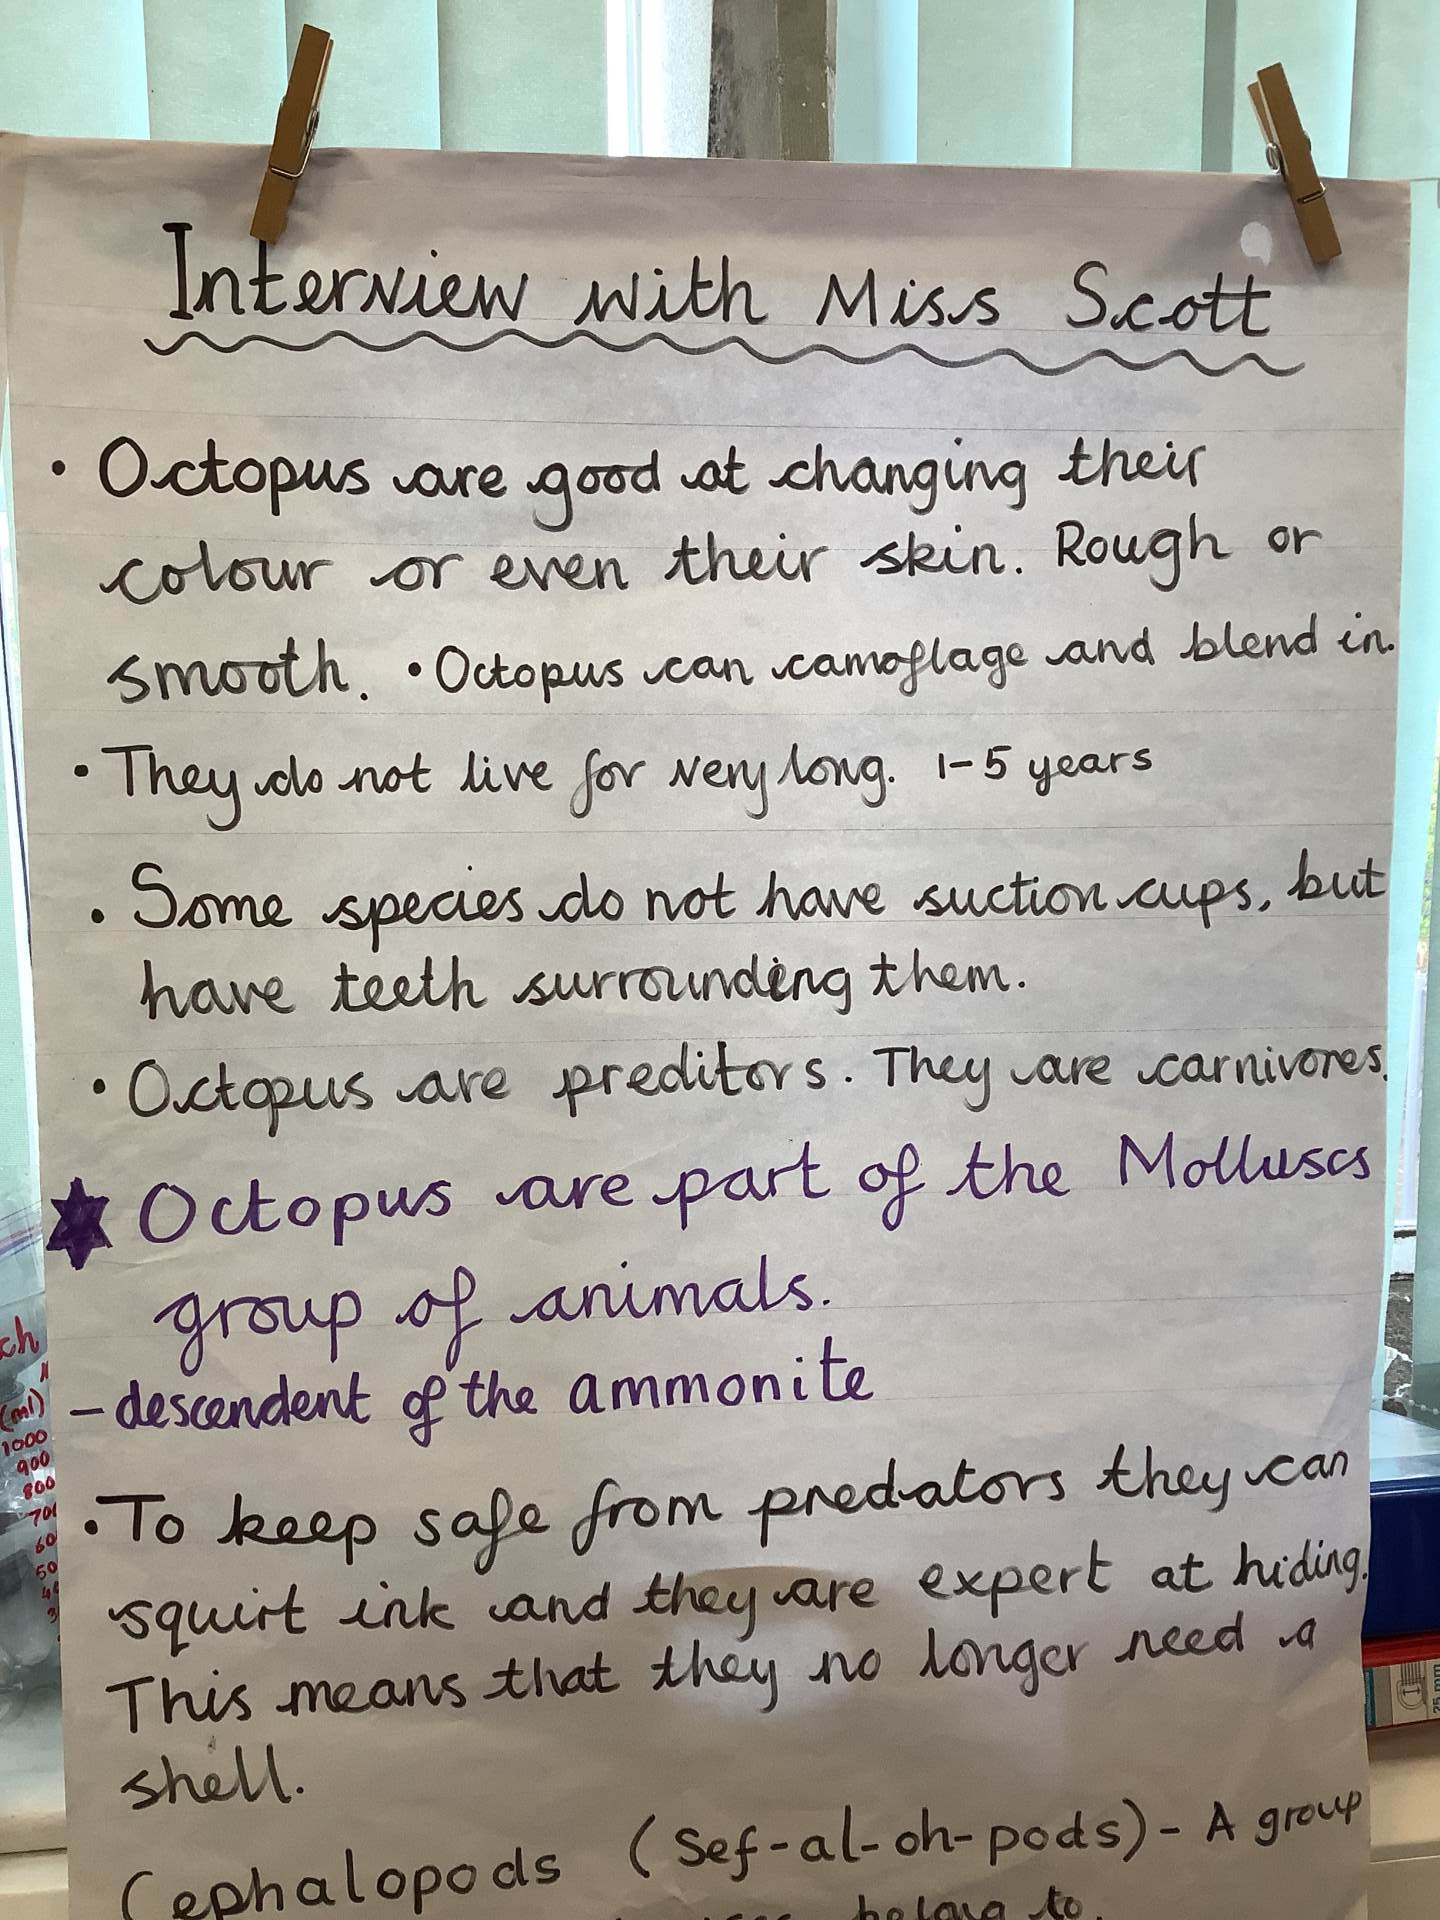 Interview with Miss Scott
• Octopus are good at changing their
colour or even their skin. Rough or
smooth. • Octopus can camoflage and blend in.
• They do not live for very long. 1-5 years
• Some species do not have suction cups, but
have teeth surrounding them.
• Octopus are preditors. They are carnivores.
Octopus are part of the Molluscs
group of animals.
- descendent of the ammonite
• To keep safe from predators they can
squirt ink and they are expert at hiding.
This means that they no longer need a
shell.
Cephalopods (Sef-al-oh-pods) - A group
belong to.
ch
(ml)
1000
900
800